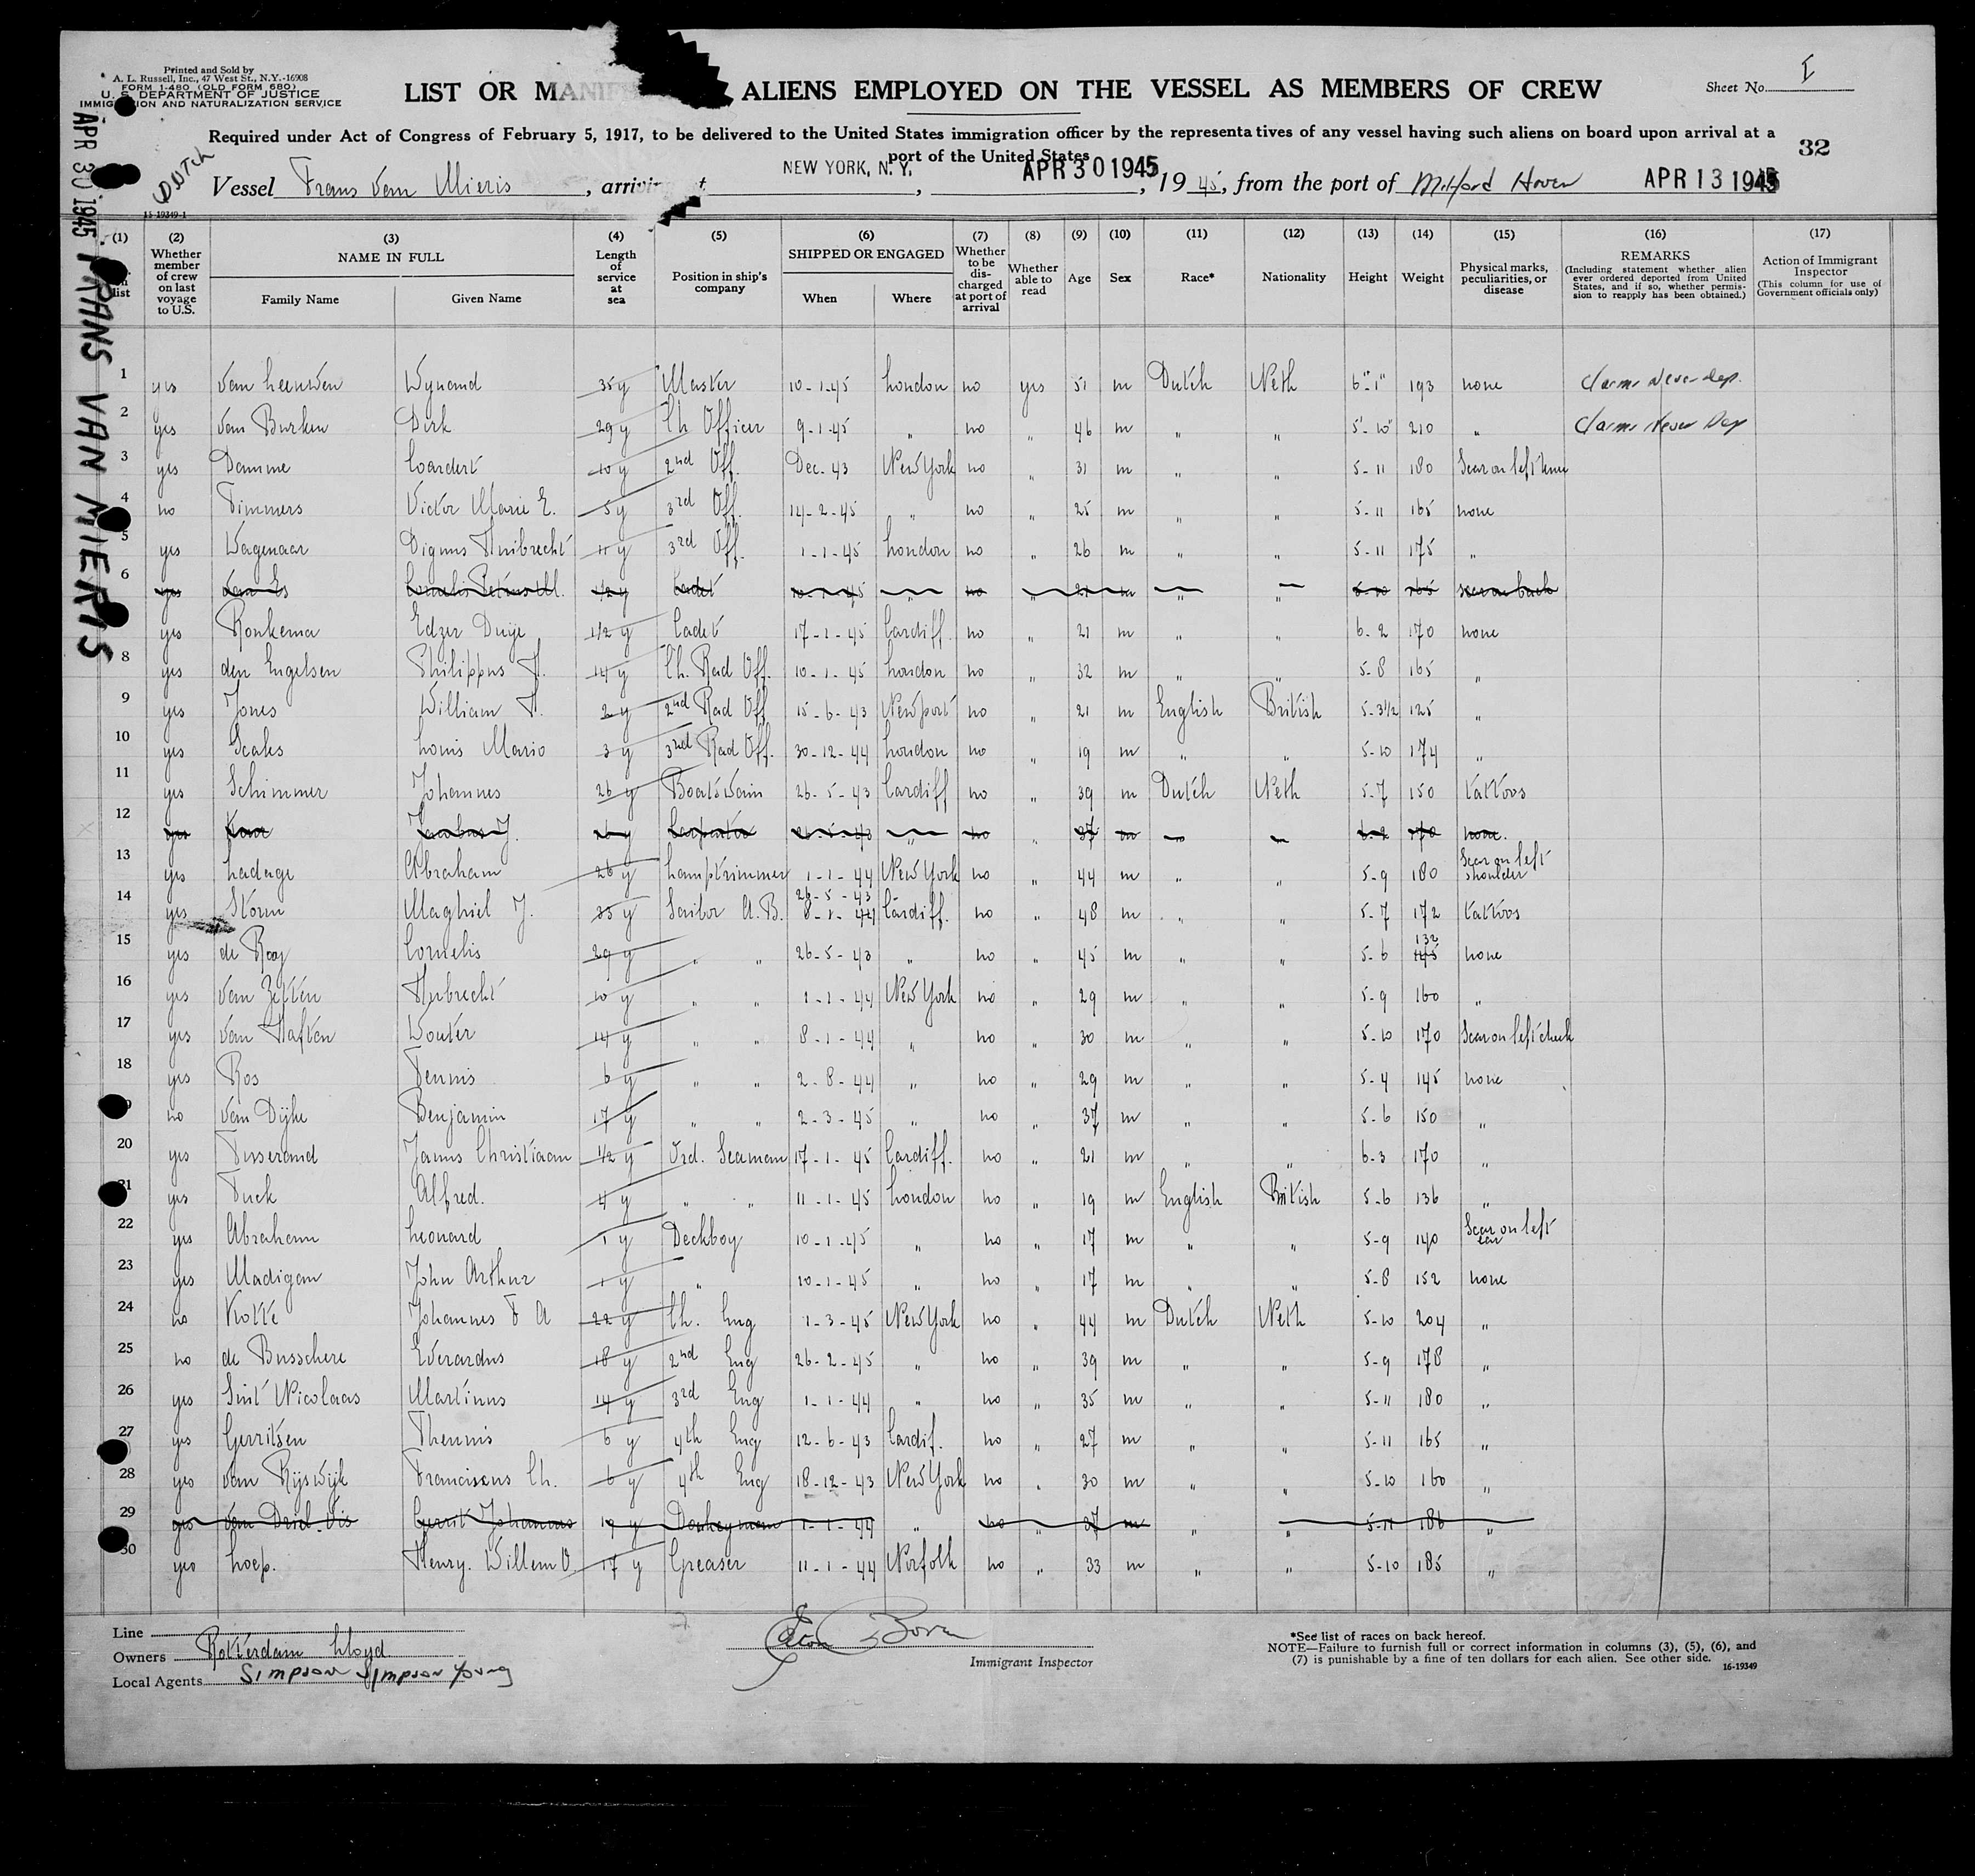 Printed and Sold by
A. L. Russell, Inc., 47 West St., N.Y.-16908
FORM 1-480 (OLD FORM 680)
U. S. DEPARTMENT OF JUSTICE
IMMIG ION AND NATURALIZATION SERVICE
LIST OR MANIF ALIENS EMPLOYED ON THE VESSEL AS MEMBERS OF CREW
Sheet No. I
Required under Act of Congress of February 5, 1917, to be delivered to the United States immigration officer by the representatives of any vessel having such aliens on board upon arrival at a
port of the United States
32
Dutch
Vessel Frans van Mieris, arriving at NEW YORK, N. Y., APR 30 1945, 19 45, from the port of Milford Haven APR 13 1945
15-19349-1
APR 30 1945 FRANS VAN MIERIS
(1) (2) (3) (4) (5) (6) (7) (8) (9) (10) (11) (12) (13) (14) (15) (16) (17)
list
Whether member of crew on last voyage to U.S.
NAME IN FULL
Family Name Given Name
Length of service at sea
Position in ship's company
SHIPPED OR ENGAGED
When Where
Whether to be discharged at port of arrival
Whether able to read
Age Sex Race* Nationality Height Weight
Physical marks, peculiarities, or disease
REMARKS
(Including statement whether alien ever ordered deported from United States, and if so, whether permission to reapply has been obtained.)
Action of Immigrant Inspector
(This column for use of Government officials only)
1 yes van Leeuwen Wynand 35 y Master 10-1-45 London no yes 51 m Dutch Neth 6'-1" 193 none Claims Never Dep.
2 yes van Burken Dirk 29 y Ch Officer 9-1-45 " no " 46 m " " 5'-10" 210 " Claims Never Dep
3 yes Damme Coardert 10 y 2nd Off. Dec. 43 New York no " 31 m " " 5-11 180 Scar on left knee
4 no Timmers Victor Marie E. 5 y 3rd Off. 14-2-45 " no " 25 m " " 5-11 165 none
5 yes Wagenaar Dignus Huibrecht 11 y 3rd Off. 1-1-45 London no " 26 m " " 5-11 175 "
6 yes van Es Cornelis Petrus M. 1/2 y Cadet 10-1-45 " no " 21 m " " 5-10 165 scar on back
yes Ronkema Edzer Duije 1/2 y Cadet 17-1-45 Cardiff. no " 21 m " " 6-2 170 none
8 yes den Engelsen Philippus H. 14 y Ch. Rad Off. 10-1-45 London no " 32 m " " 5-8 165 "
9 yes Jones William H. 2 y 2nd Rad Off 15-6-43 Newport no " 21 m English British 5-3 1/2 125 "
10 yes Scales Louis Mario 3 y 3rd Rad Off. 30-12-44 London no " 19 m " " 5-10 174 "
11 yes Schimmer Johannes 26 y Boatswain 26-5-43 Cardiff no " 39 m Dutch Neth 5-7 150 tattoos
12 yes Jacobus J. y Carpenter 26-5-43 " no " 37 m 6-2 170 none.
13 yes Ladage Abraham 26 y Lamptrimmer 1-1-44 New York no " 44 m " " 5-9 180 Scar on left shoulder
14 yes Storm Maghiel J. 35 y Sailor A.B. 26-5-43 8-1-44 Cardiff. no " 48 m " " 5-7 172 tattoos
15 yes de Rooy Cornelis 29 y " " 26-5-43 " no " 45 m " " 5-6 132 145 none
16 yes van Zetten Hubrecht 10 y " " 1-1-44 New York no " 29 m " " 5-9 160 "
17 yes van Haften Wouter 14 y " " 8-1-44 " no " 30 m " " 5-10 170 Scar on left cheek
18 yes Ros Teunis 6 y " " 2-8-44 " no " 29 m " " 5-4 145 none
9 no van Dijke Benjamin 17 y " " 2-3-45 " no " 37 m " " 5-6 150 "
20 yes Tisserand Janus Christiaan 1/2 y Ord. Seaman 17-1-45 Cardiff. no " 21 m " " 6-3 170 "
21 yes Tuck Alfred. 4 y " " 11-1-45 London no " 19 m English British 5-6 136 "
22 yes Abraham Leonard 1 y Deckboy 10-1-45 " no " 17 m " " 5-9 140 Scar on left ear
23 yes Madigan John Arthur 1 y " 10-1-45 " no " 17 m " " 5-8 152 none
24 no Kotte Johannes F A 22 y Ch. Eng 1-3-45 New York no " 44 m Dutch Neth 5-10 204 "
25 no de Busschere Everardus 18 y 2nd Eng 26-2-45 " no " 39 m " " 5-9 178 "
26 yes Sint Nicolaas Martinus 14 y 3rd Eng 1-1-44 " no " 35 m " " 5-11 180 "
27 yes Gerritsen Theunis 6 y 4th Eng 12-6-43 Cardif. no " 27 m " " 5-11 165 "
28 yes van Rijswijk Franciscus Ch. 6 y 4th Eng 18-12-43 New York no " 30 m " " 5-10 160 "
29 yes van Driel. Vis Gerrit Johannes 19 y Donkeyman 1-1-44 " no " 37 m " " 5-11 186 "
30 yes Loep. Henry. Willem V. 17 y Greaser 11-1-44 Norfolk no " 33 m " " 5-10 185 "
Line
Owners Rotterdam Lloyd
Local Agents Simpson Simpson Young
Immigrant Inspector
*See list of races on back hereof.
NOTE—Failure to furnish full or correct information in columns (3), (5), (6), and
(7) is punishable by a fine of ten dollars for each alien. See other side.
16-19349